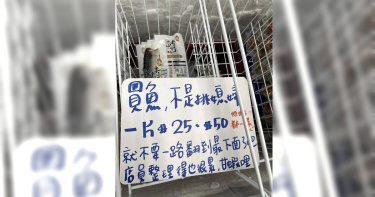 買魚,不是挑媳婦
一片$25.$50
就不要一路翻到最下面
店員整理得也很累,